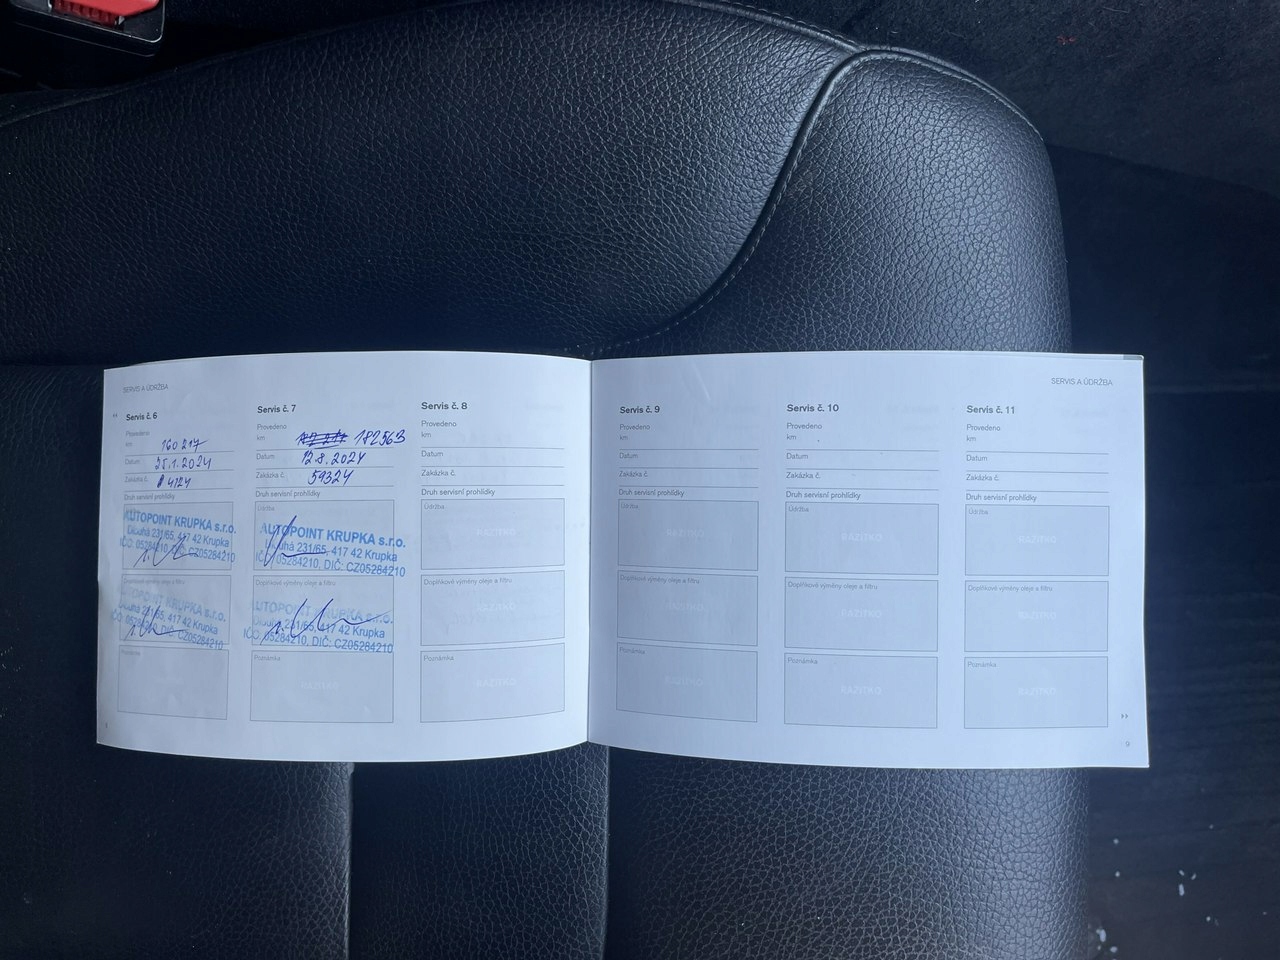 SERVIS A ÚDRŽBA
Servis č. 6
Provedeno
km 160 217
Datum 25.1.2024
Zakázka č. 4124
Druh servisní prohlídky
AUTOPOINT KRUPKA s.r.o.
Dlouhá 231/65, 417 42 Krupka
IČO: 05284210, DIČ: CZ05284210
Doplňkové výměny oleje a filtru
AUTOPOINT KRUPKA s.r.o.
Dlouhá 231/65, 417 42 Krupka
IČO: 05284210, DIČ: CZ05284210
Poznámka
Servis č. 7
Provedeno
km 182563
Datum 12.8.2024
Zakázka č. 59324
Druh servisní prohlídky
Údržba
AUTOPOINT KRUPKA s.r.o.
Dlouhá 231/65, 417 42 Krupka
IČO: 05284210, DIČ: CZ05284210
Doplňkové výměny oleje a filtru
AUTOPOINT KRUPKA s.r.o.
Dlouhá 231/65, 417 42 Krupka
IČO: 05284210, DIČ: CZ05284210
Poznámka
RAZÍTKO
Servis č. 8
Provedeno
km
Datum
Zakázka č.
Druh servisní prohlídky
Údržba
RAZÍTKO
Doplňkové výměny oleje a filtru
RAZÍTKO
Poznámka
RAZÍTKO
SERVIS A ÚDRŽBA
Servis č. 9
Provedeno
km
Datum
Zakázka č.
Druh servisní prohlídky
Údržba
RAZÍTKO
Doplňkové výměny oleje a filtru
RAZÍTKO
Poznámka
RAZÍTKO
Servis č. 10
Provedeno
km
Datum
Zakázka č.
Druh servisní prohlídky
Údržba
RAZÍTKO
Doplňkové výměny oleje a filtru
RAZÍTKO
Poznámka
RAZÍTKO
Servis č. 11
Provedeno
km
Datum
Zakázka č.
Druh servisní prohlídky
Údržba
RAZÍTKO
Doplňkové výměny oleje a filtru
RAZÍTKO
Poznámka
RAZÍTKO
9